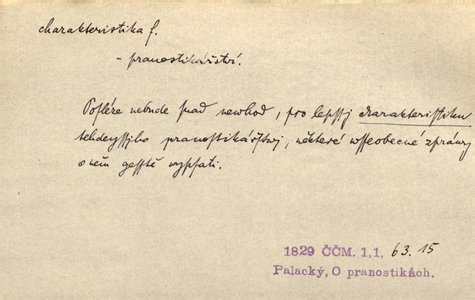 charakteristika f.
- pranostikářství.
Posléze nebude snad newhod, pro lepssj charakteristiku
tehdegssjho pranostikářstwj, některé wsseobecné zpráwy
o něm gesstě wypsati.
1829 ČČM. 1,1, 63. 15
Palacký, O pranostikách.